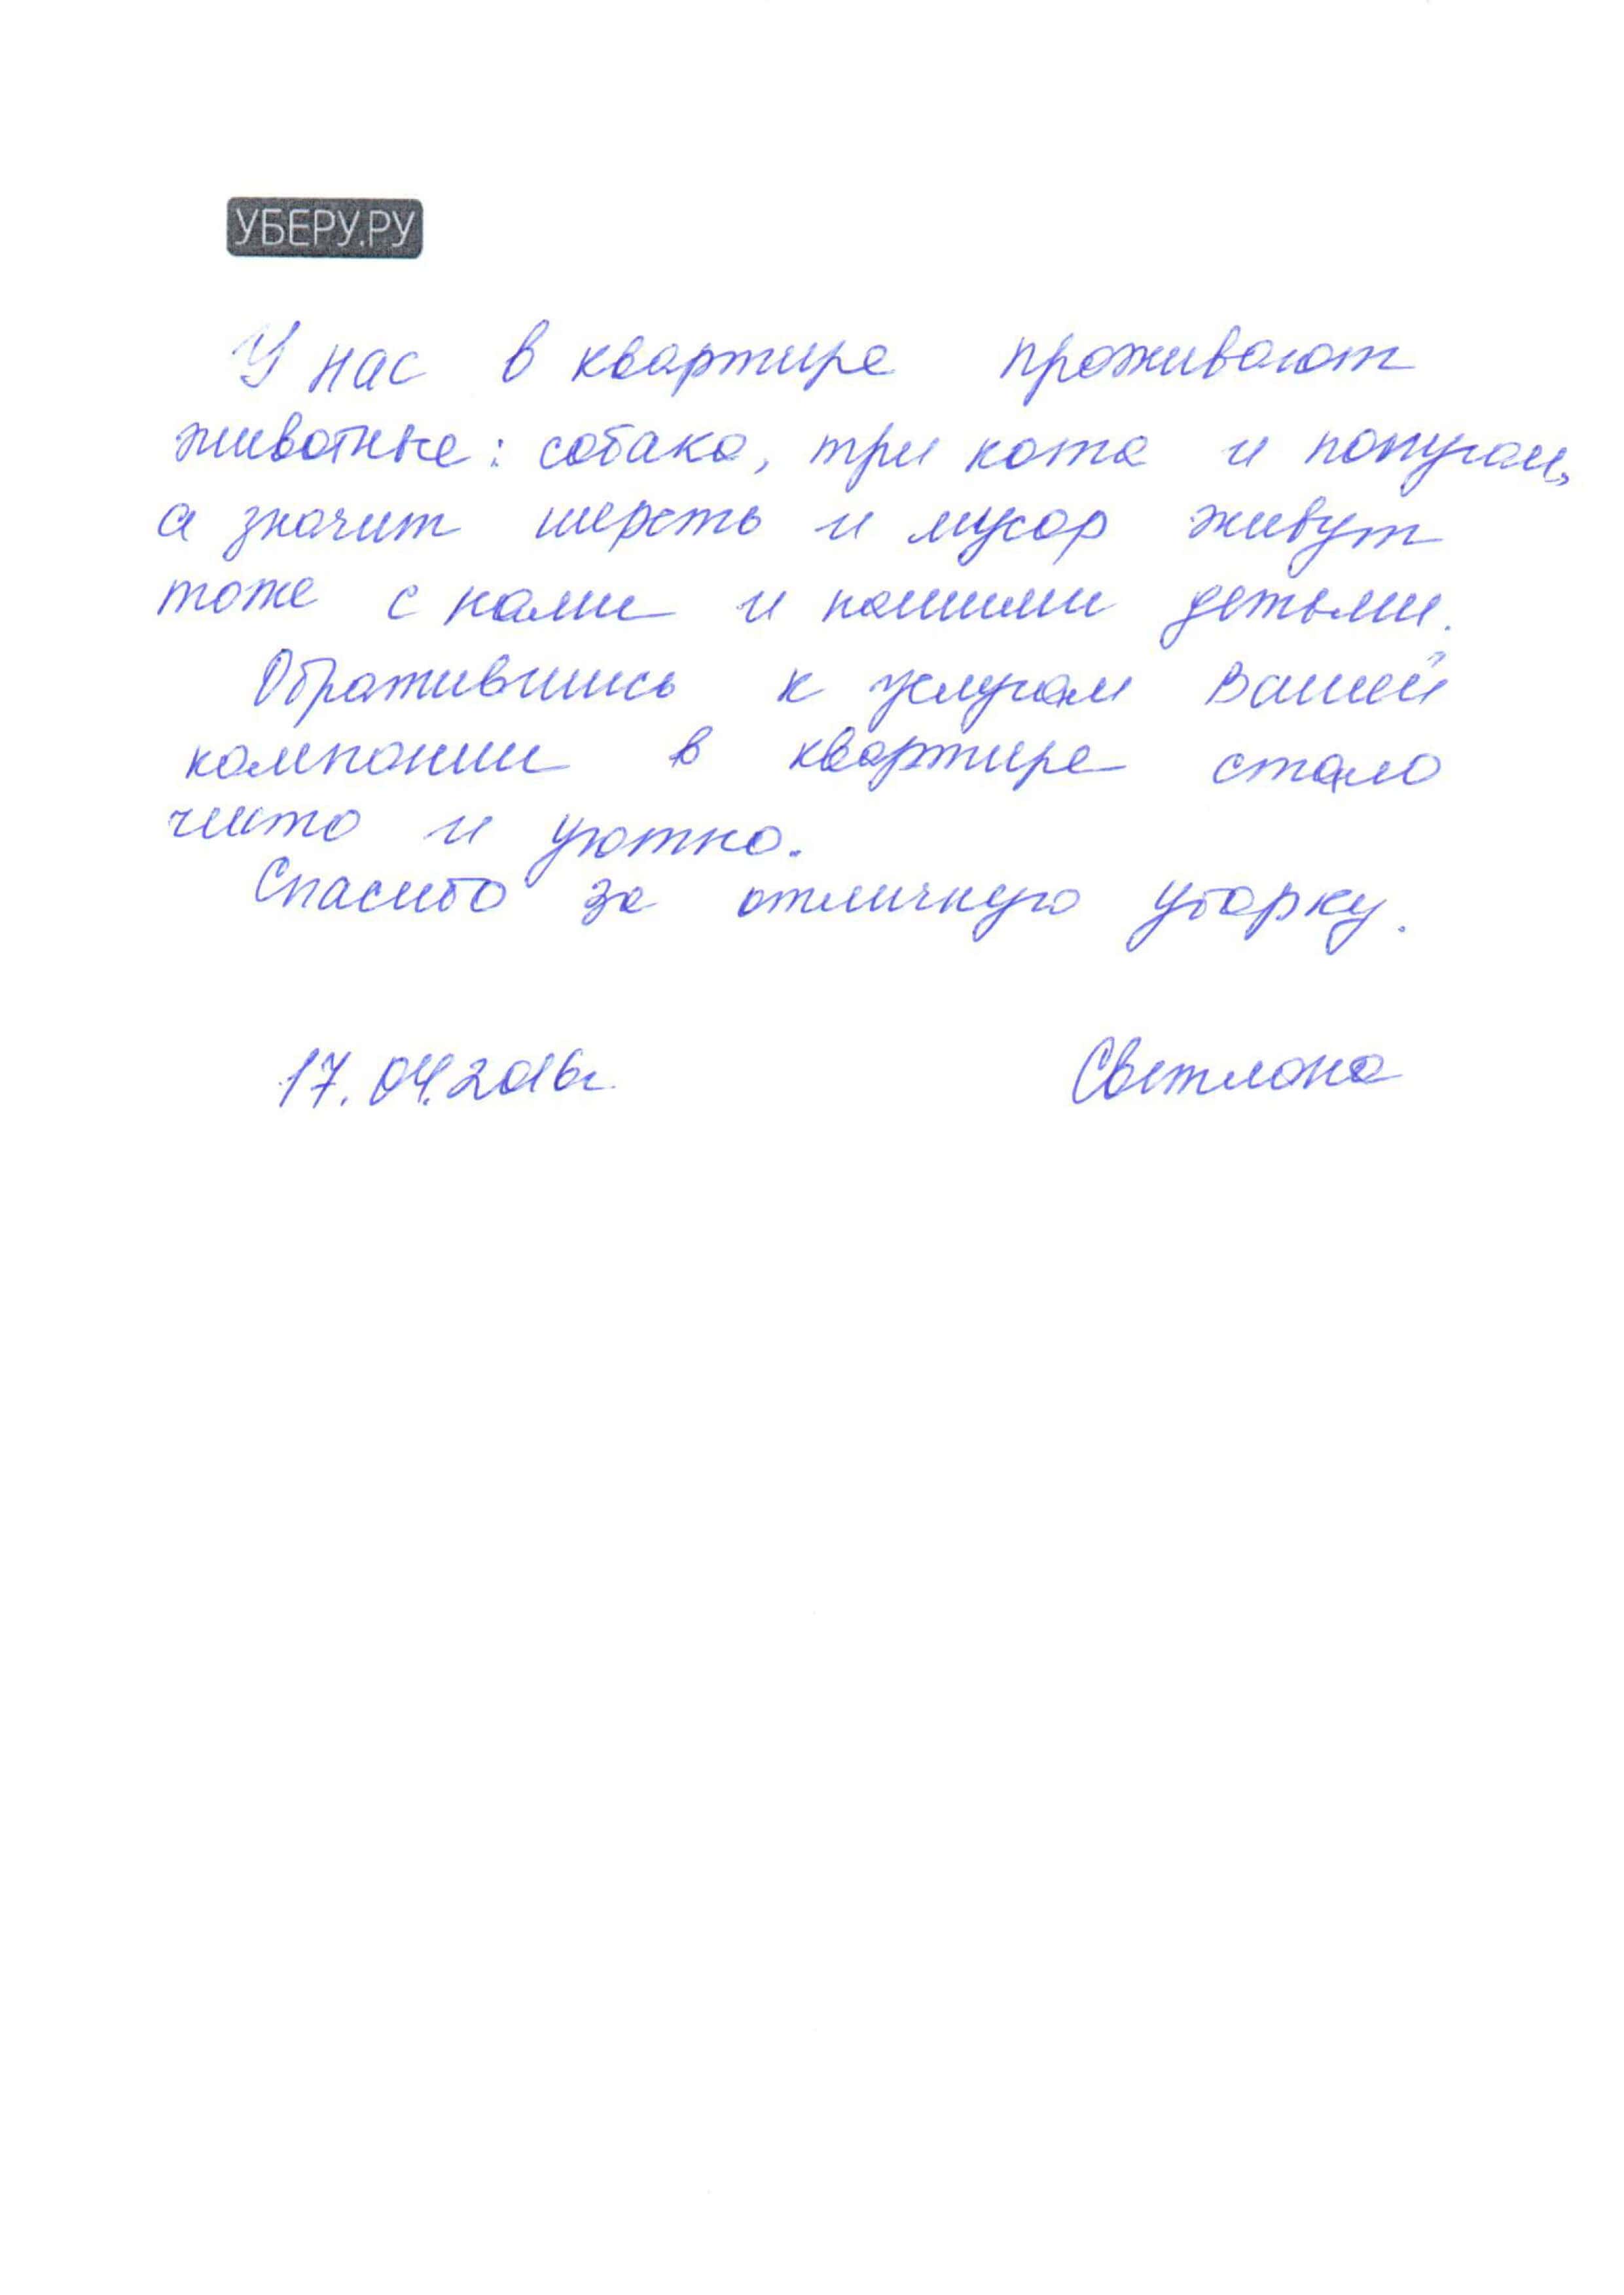 УБЕРУ.РУ
У нас в квартире проживают
животные: собака, три кота и попугаи,
а значит шерсть и мусор живут
тоже с нами и нашими детьми.
Обратившись к услугам Вашей
компании в квартире стало
чисто и уютно.
Спасибо за отличную уборку.
17.04.2016г.
Светлана